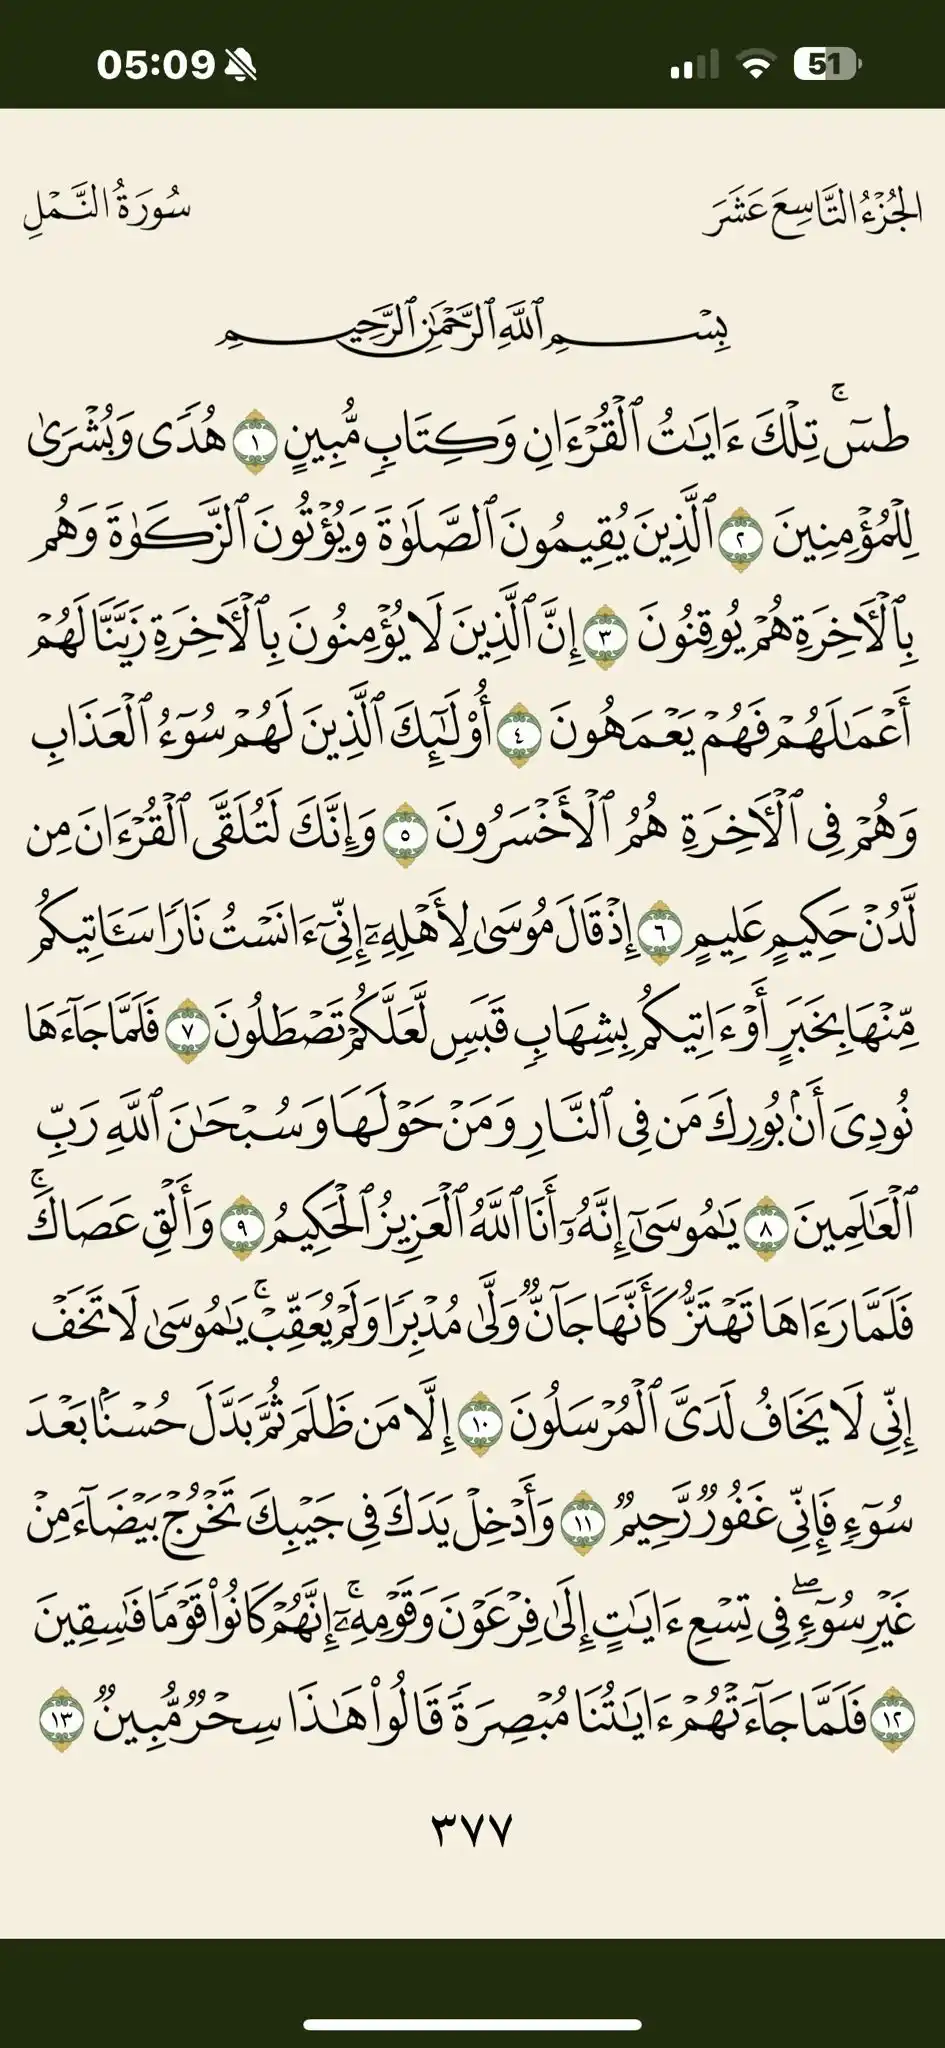 05:09
51
الجُزْءُ التَّاسِعَ عَشَرَ
سُورَةُ النَّمْلِ
بِسْمِ ٱللَّهِ ٱلرَّحْمَٰنِ ٱلرَّحِيمِ
طسٓۚ تِلْكَ ءَايَٰتُ ٱلْقُرْءَانِ وَكِتَابٖ مُّبِينٍ ١ هُدٗى وَبُشْرَىٰ
لِلْمُؤْمِنِينَ ٢ ٱلَّذِينَ يُقِيمُونَ ٱلصَّلَوٰةَ وَيُؤْتُونَ ٱلزَّكَوٰةَ وَهُم
بِٱلْأٓخِرَةِ هُمْ يُوقِنُونَ ٣ إِنَّ ٱلَّذِينَ لَا يُؤْمِنُونَ بِٱلْأٓخِرَةِ زَيَّنَّا لَهُمْ
أَعْمَٰلَهُمْ فَهُمْ يَعْمَهُونَ ٤ أُوْلَٰٓئِكَ ٱلَّذِينَ لَهُمْ سُوٓءُ ٱلْعَذَابِ
وَهُمْ فِي ٱلْأٓخِرَةِ هُمُ ٱلْأَخْسَرُونَ ٥ وَإِنَّكَ لَتُلَقَّى ٱلْقُرْءَانَ مِن
لَّدُنْ حَكِيمٍ عَلِيمٍ ٦ إِذْ قَالَ مُوسَىٰ لِأَهْلِهِۦٓ إِنِّيٓ ءَانَسْتُ نَارٗا سَـَٔاتِيكُم
مِّنْهَا بِخَبَرٍ أَوْ ءَاتِيكُم بِشِهَابٖ قَبَسٖ لَّعَلَّكُمْ تَصْطَلُونَ ٧ فَلَمَّا جَآءَهَا
نُودِيَ أَنۢ بُورِكَ مَن فِي ٱلنَّارِ وَمَنْ حَوْلَهَا وَسُبْحَٰنَ ٱللَّهِ رَبِّ
ٱلْعَٰلَمِينَ ٨ يَٰمُوسَىٰٓ إِنَّهُۥٓ أَنَا ٱللَّهُ ٱلْعَزِيزُ ٱلْحَكِيمُ ٩ وَأَلْقِ عَصَاكَۚ
فَلَمَّا رَءَاهَا تَهْتَزُّ كَأَنَّهَا جَآنّٞ وَلَّىٰ مُدْبِرٗا وَلَمْ يُعَقِّبْۚ يَٰمُوسَىٰ لَا تَخَفْ
إِنِّي لَا يَخَافُ لَدَيَّ ٱلْمُرْسَلُونَ ١٠ إِلَّا مَن ظَلَمَ ثُمَّ بَدَّلَ حُسْنَۢا بَعْدَ
سُوٓءٖ فَإِنِّي غَفُورٞ رَّحِيمٞ ١١ وَأَدْخِلْ يَدَكَ فِي جَيْبِكَ تَخْرُجْ بَيْضَآءَ مِنْ
غَيْرِ سُوٓءٖۖ فِي تِسْعِ ءَايَٰتٍ إِلَىٰ فِرْعَوْنَ وَقَوْمِهِۦٓۚ إِنَّهُمْ كَانُواْ قَوْمٗا فَٰسِقِينَ
١٢ فَلَمَّا جَآءَتْهُمْ ءَايَٰتُنَا مُبْصِرَةٗ قَالُواْ هَٰذَا سِحْرٞ مُّبِينٞ ١٣
٣٧٧